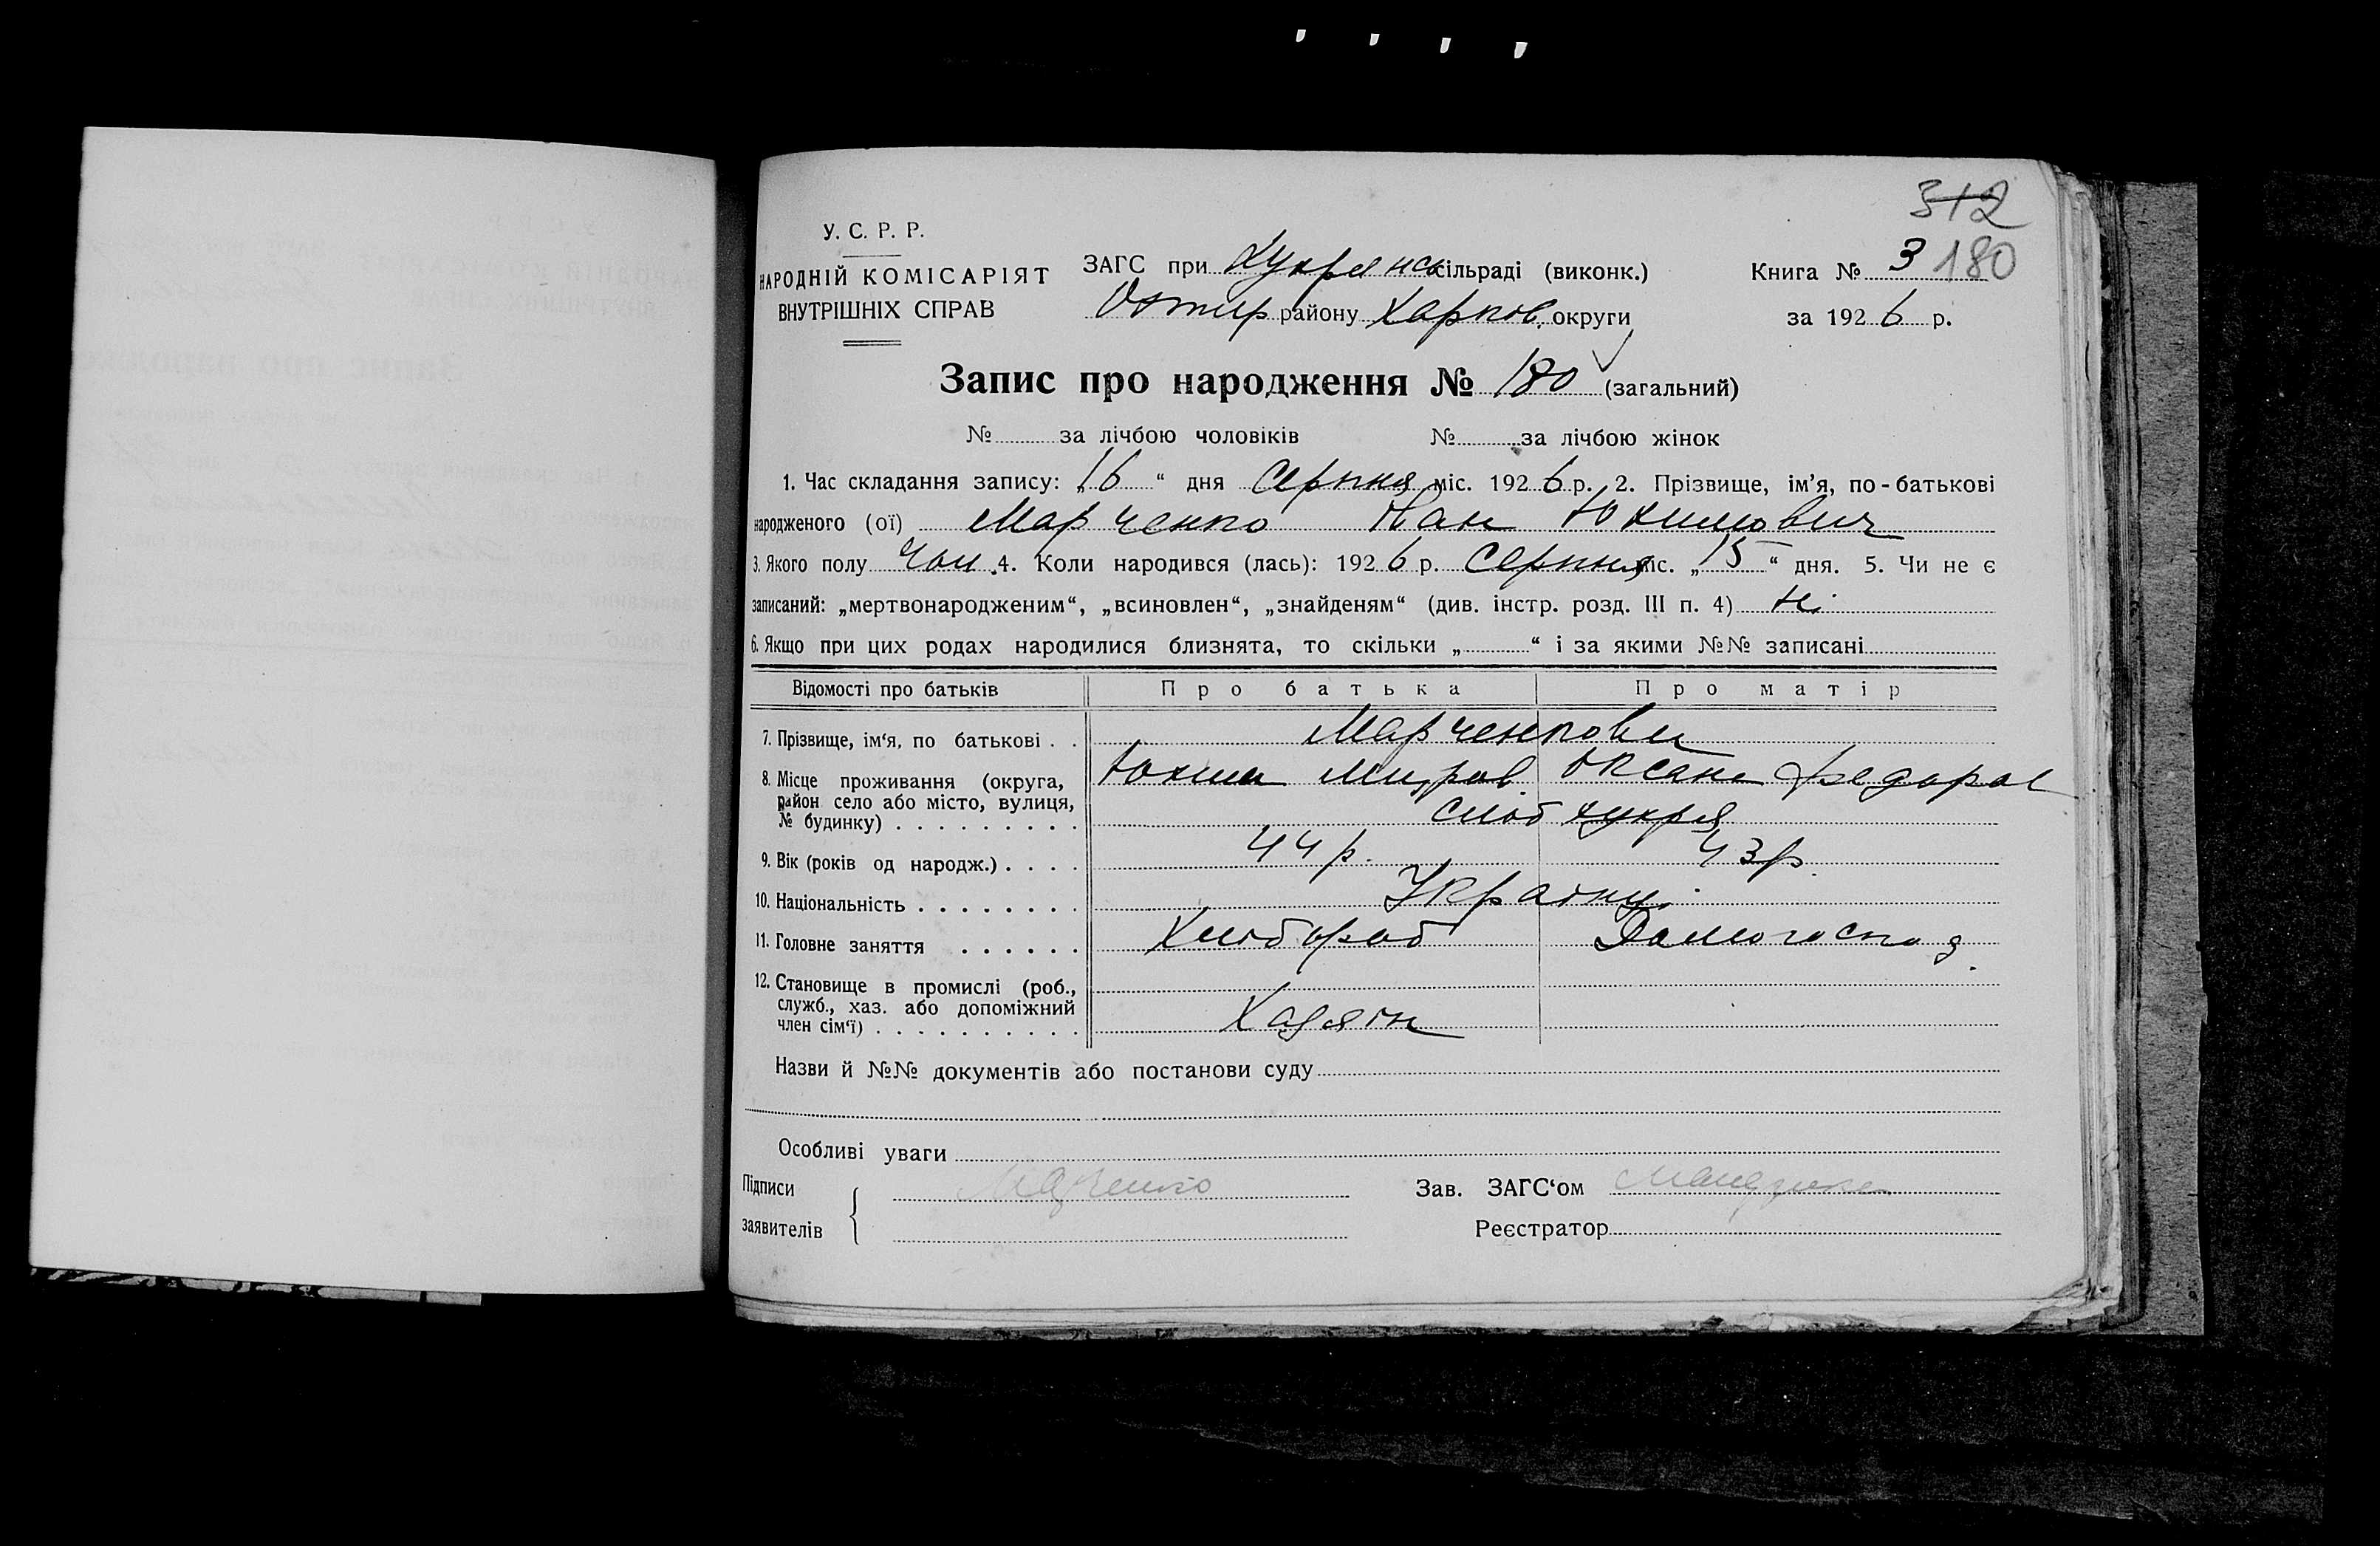 312
У. С. Р. Р.
НАРОДНІЙ КОМІСАРІЯТ
ВНУТРІШНІХ СПРАВ
ЗАГС при Хухрянськ сільраді (виконк.)
Охтир району Харков. округи
Книга № 3 180
за 1926 р.
Запис про народження № 180 (загальний)
№ за лічбою чоловіків № за лічбою жінок
1. Час складання запису: „16“ дня Серпня міс. 1926 р. 2. Прізвище, ім’я, по-батькові
народженого (ої) Марченко Іван Юхимович
3. Якого полу Чол. 4. Коли народився (лась): 1926 р. Серпня міс. „15“ дня. 5. Чи не є
записаний: „мертвонародженим“, „всиновлен“, „знайденям“ (див. інстр. розд. III п. 4) Ні
6. Якщо при цих родах народилися близнята, то скільки „ “ і за якими №№ записані
Відомості про батьків Про батька Про матір
7. Прізвище, ім‘я, по батькові . . Марченкови
Юхим Оксана Федоров
8. Місце проживання (округа,
район село або місто, вулиця,
№ будинку) . . . . . . . . . слоб Хухря
9. Вік (років од народж.) . . . . 44 р. 43 р.
10. Національність . . . . . . . . Українці
11. Головне заняття . . . . . . Хлібороб Домогоспод.
12. Становище в промислі (роб.,
служб., хаз. або допоміжний
член сім‘ї) . . . . . . . . . . Хазяїн
Назви й №№ документів або постанови суду
Особливі уваги
Підписи
заявителів
Зав. ЗАГС‘ом
Реєстратор